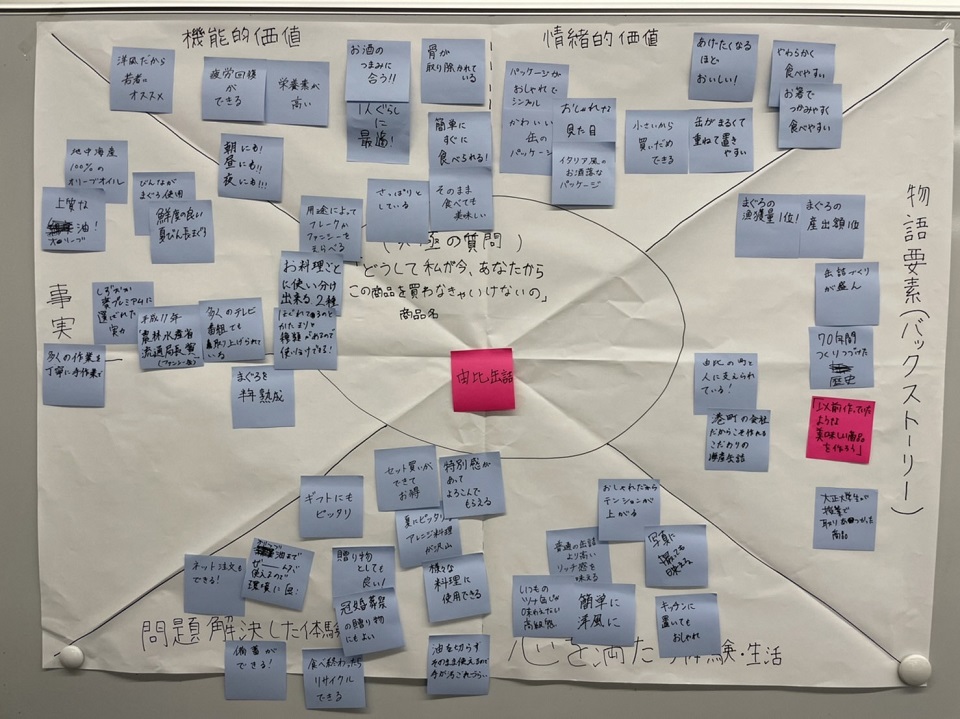 機能的価値
洋風だから
若者に
オススメ
疲労回復
が
できる
栄養素が
高い
お酒の
つまみに
合う!!
1人ぐらし
に
最適!
骨が
取り除かれて
いる
簡単に
すぐに
食べられる!
朝にも!
昼にも!!
夜にも!!!
さっぱりと
している
そのまま
食べても
美味しい
情緒的価値
パッケージが
おしゃれで
シンプル
かわいい
缶の
パッケージ
おしゃれな
見た目
イタリア風の
お洒落な
パッケージ
小さいから
買いだめ
できる
缶がまるくて
重ねて置き
やすい
あげたくなる
ほど
おいしい!
やわらかく
食べやすい
お箸で
つかみやすく
食べやすい
事実
地中海産
100%の
オリーブオイル
上質な
油!
オリーブ
びんなが
まぐろ使用
鮮度の良い
真びん長まぐろ
用途によって
フレークか
ファンシーを
えらべる
お料理ごと
に使い分け
出来る2種
かたまりと
種類があるので
使い分けできる!
しずおか
食プレミアムに
選ばれた
実力
平成17年
農林水産省
流通局長賞
多くのテレビ
番組でも
取り上げられて
いる
多くの作業を
丁寧に手作業で
まぐろを
半年熟成
(究極の質問)
「どうして私が今、あなたから
この商品を買わなきゃいけないの」
商品名
由比缶詰
物語要素(バックストーリー)
まぐろの
漁獲量1位!
まぐろの
産出額1位
缶詰づくり
が盛ん
70年間
つくりつづけた
歴史
由比の町と
人に支えられ
ている!
港町の会社
だからこそ作れる
こだわりの
海産缶詰
「以前作っていた
ような
美味しい商品
を作ろう」
大正大学生が
授業で
取りあつかった
商品
問題解決した体験
ギフトにも
ピッタリ
セット買いが
できて
お得
特別感が
あって
よろこんで
もらえる
夏にピッタリ
アレンジ料理
が沢山
ネット注文も
できる!
オリーブ
油まで
ぜーんぶ
使えるので
環境に良い
贈り物
としても
良い!
冠婚葬祭
の贈り物
にもよい
様々な
料理に
使用できる
備蓄が
できる!
食べ終わったら
リサイクル
できる
油を切らず
そのまま使えるので
手がよごれづらい
心を満たす体験・生活
おしゃれだから
テンションが
上がる
普通の缶詰
より高い
リッチ感を
味える
写真に
撮っても
映える
いつもの
ツナ缶じゃ
味わえない
高級感
簡単に
洋風に
キッチンに
置いても
おしゃれ